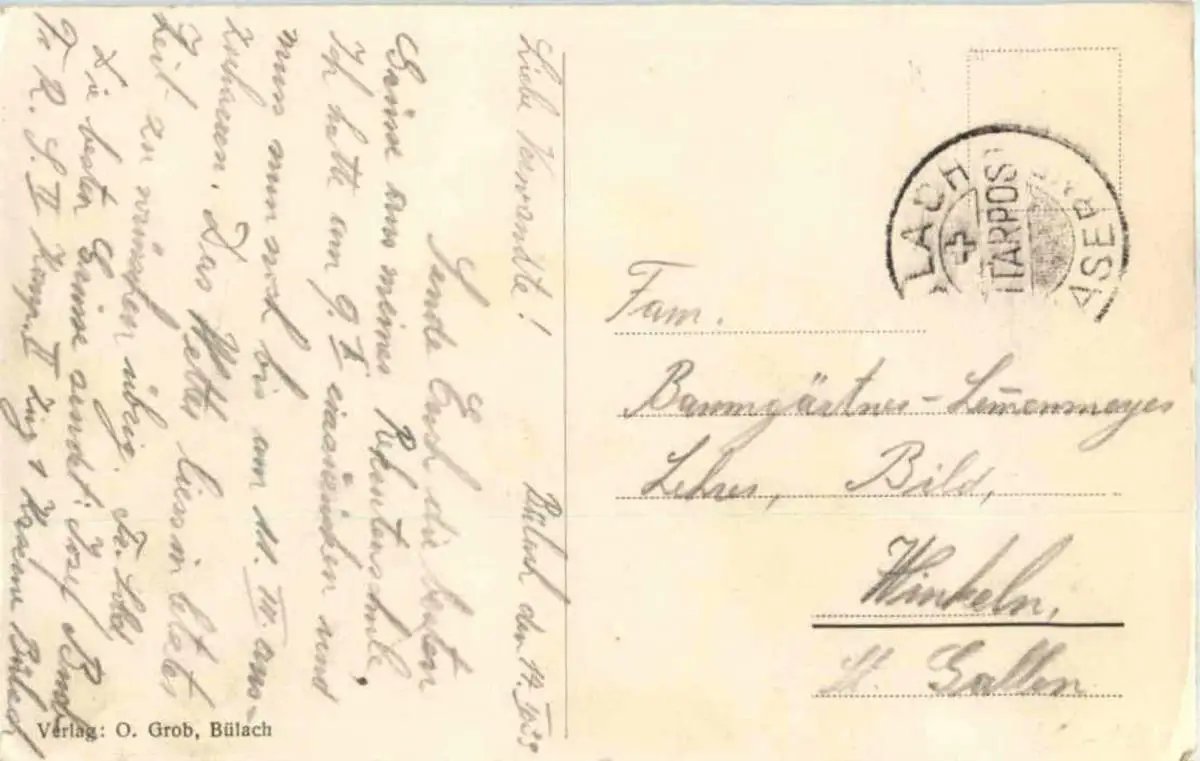 Liebe Verwandte!
Bülach den 19.
Sende Euch die besten
Grüsse aus meiner Rekrutenschule.
Ich hatte am 9. einrücken und
muss nun noch bis am 11. aus-
Das Wetter liess in letzter
Zeit zu wünschen übrig.
Die besten Grüsse sendet: Josef
Tr. R. S. II Komp. II Zug 1 Kaserne Bülach
Verlag: O. Grob, Bülach
LACH
TARPOS
ASER
Fam.
Baumgärtner-
Lehrer, Bild,
Winkeln,
St. Gallen